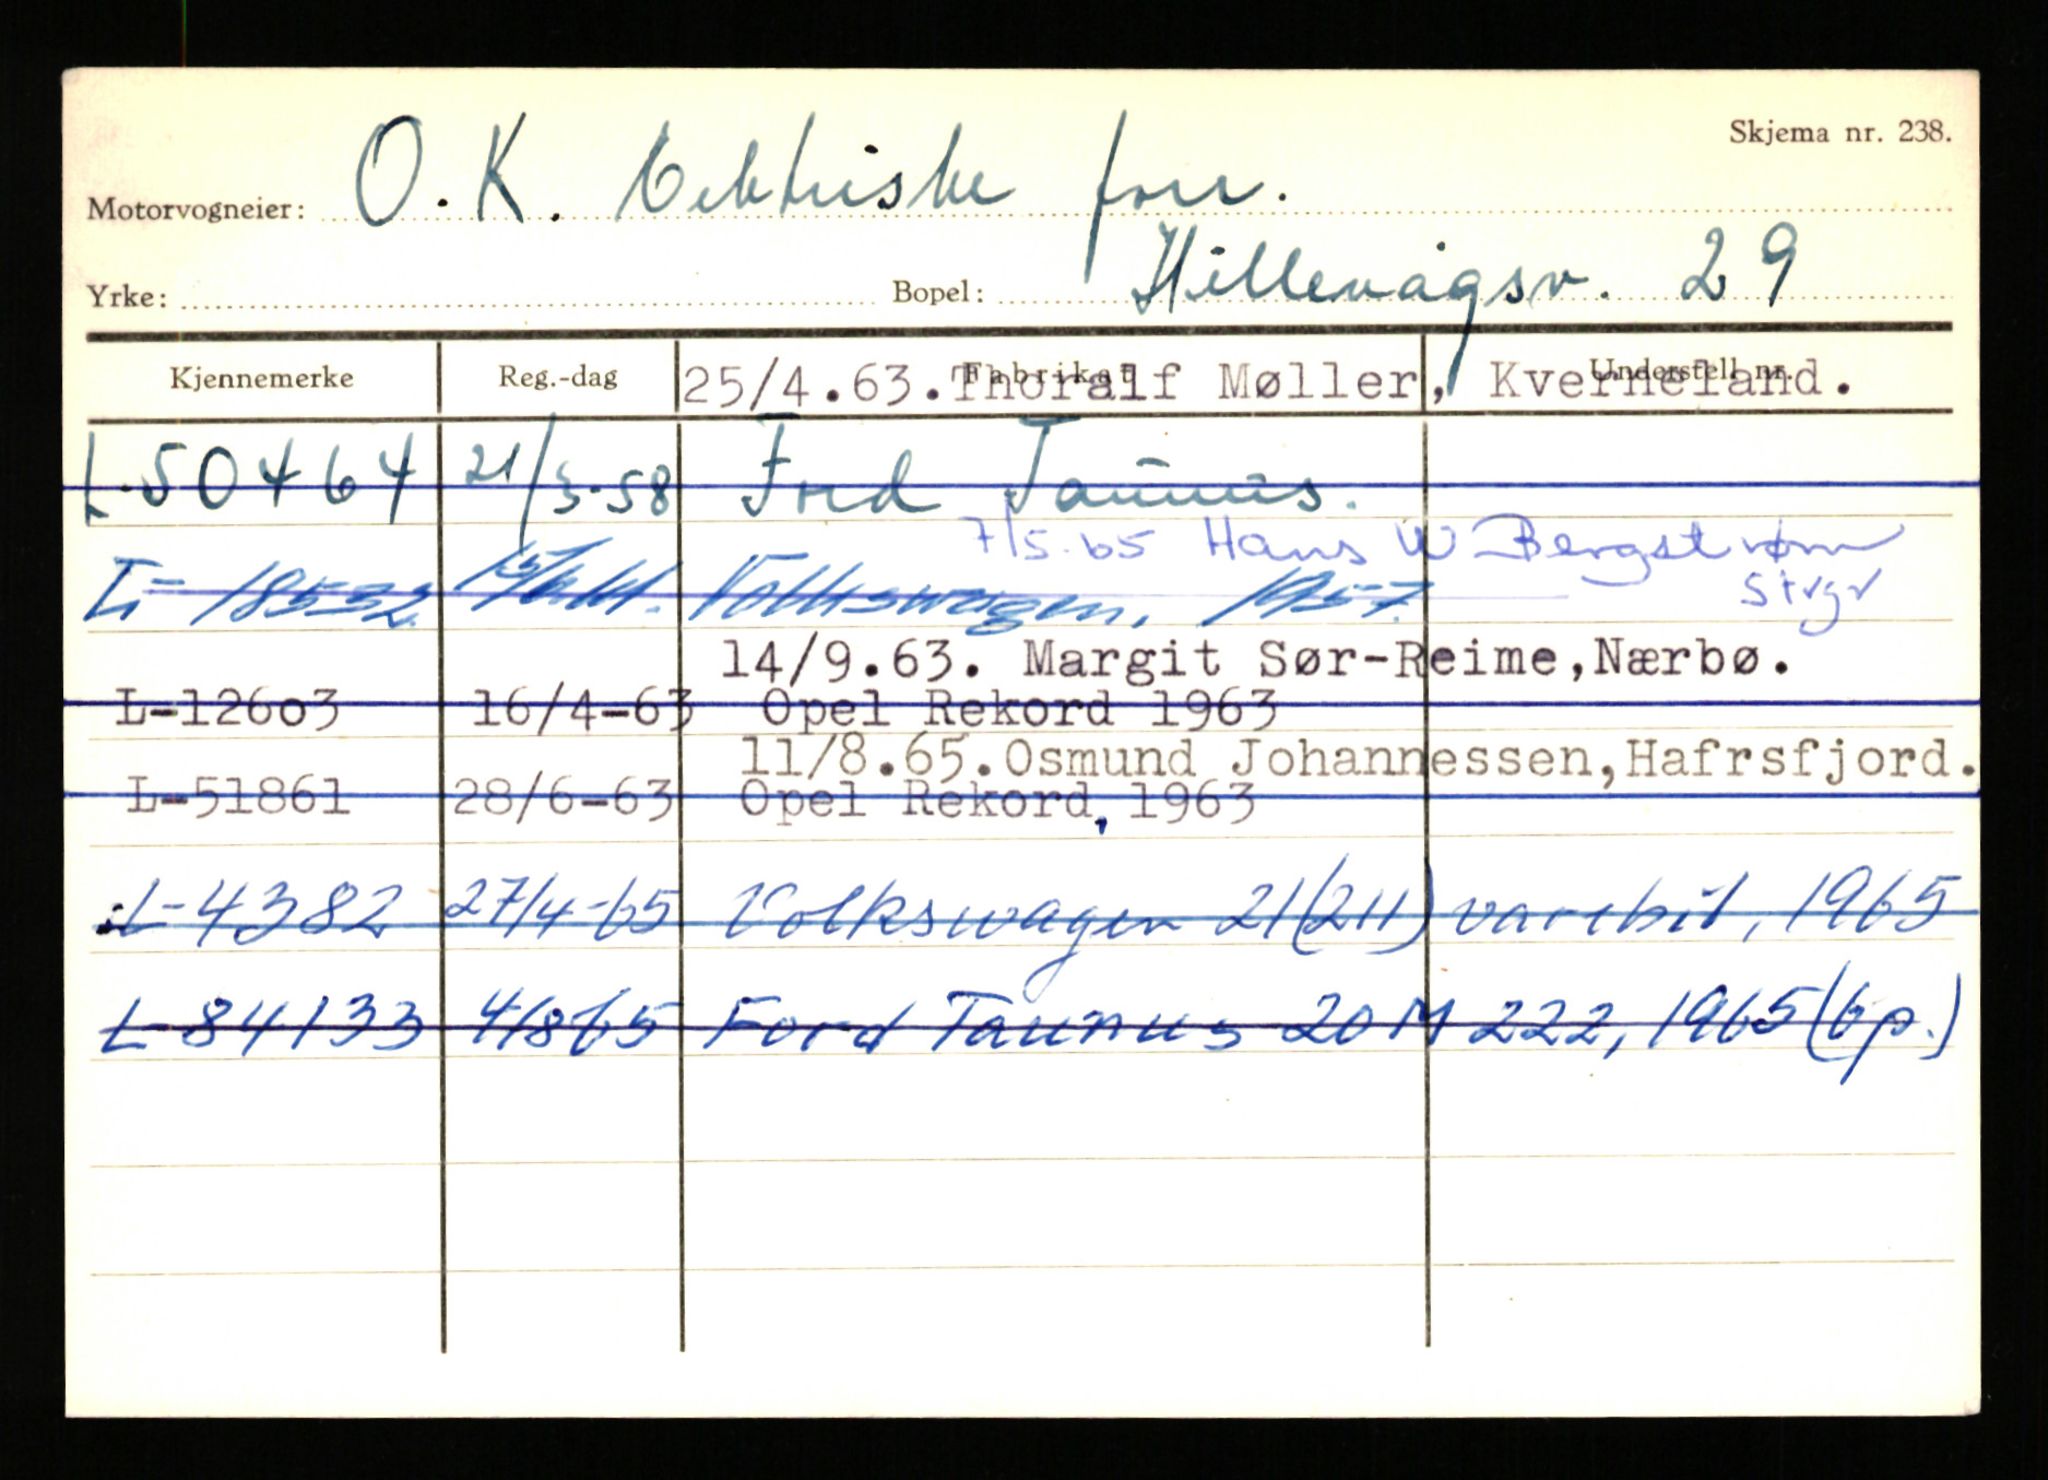 Skjema nr. 238.
Motorvogneier: O. K. Elektriske forr.
Yrke: Bopel: Hillevågsv. 29
Kjennemerke Reg.-dag Fabrikat Understell nr.
25/4.63. Thoralf Møller, Kverneland.
L-50464 21/3-58 Ford Taunus.
7/5.65 Hans W Bergstrøm
Strgr
L-18532 Volkswagen, 1957.
14/9.63. Margit Sør-Reime, Nærbø.
L-12603 16/4-63 Opel Rekord 1963
11/8.65. Osmund Johannessen, Hafrsfjord.
L-51861 28/6-63 Opel Rekord, 1963
L-4382 27/4-65 Volkswagen 21(211) varebil, 1965
L-84133 4/8 65 Ford Taunus 20M 222, 1965 (6 p.)